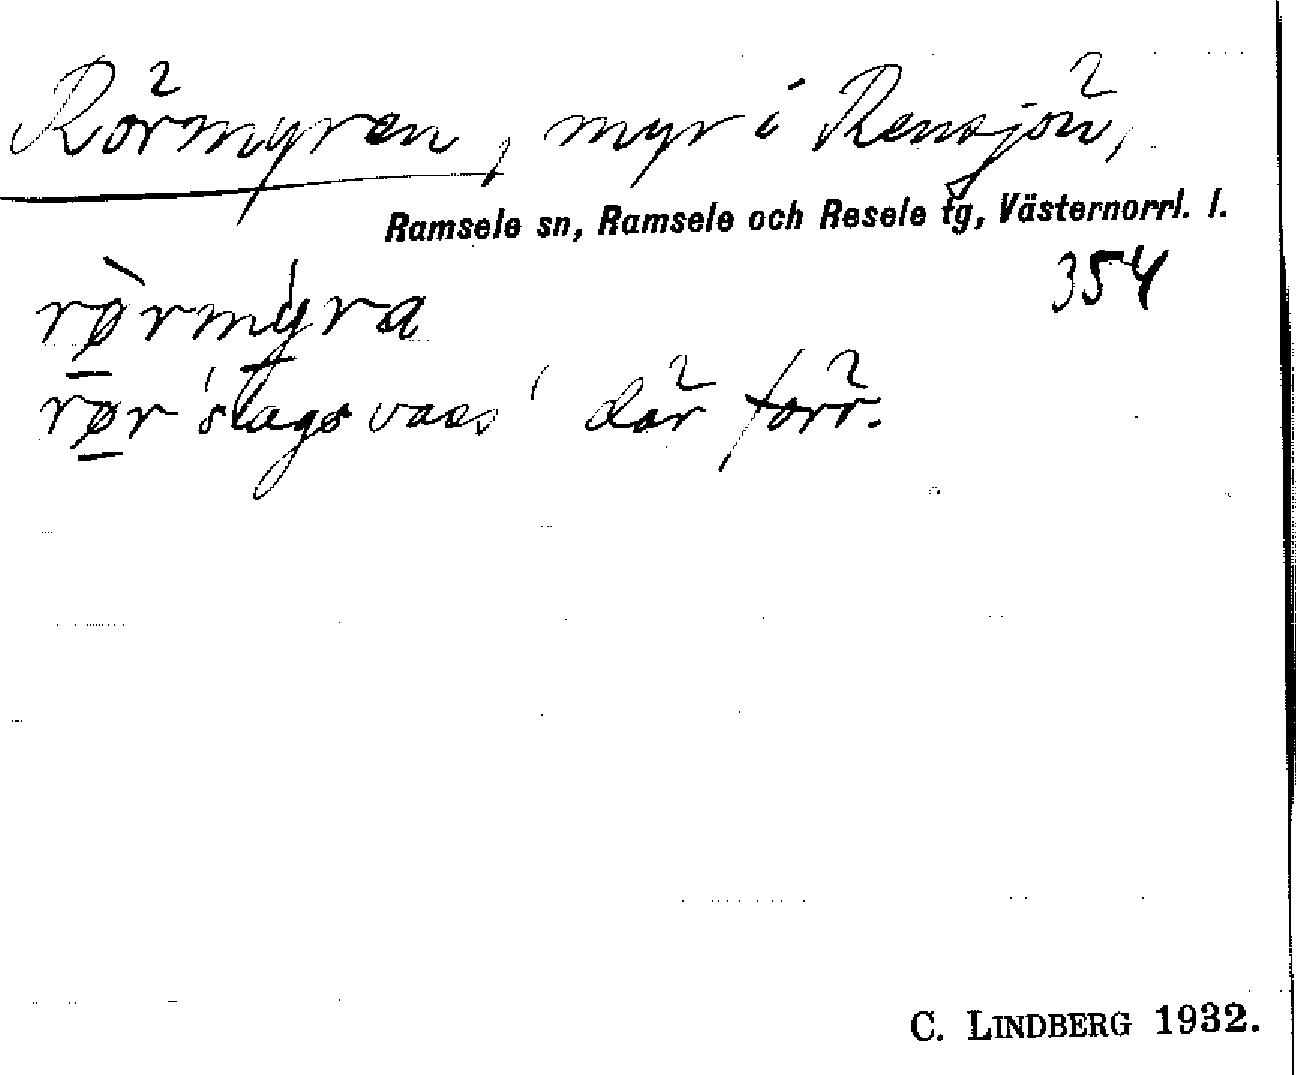 Rörmyren, myr i Rensjön,
Ramsele sn, Ramsele och Resele tg, Västernorrl. l.
354
rø̀rmýra
rør 'slags vass' där förr.
C. LINDBERG 1932.